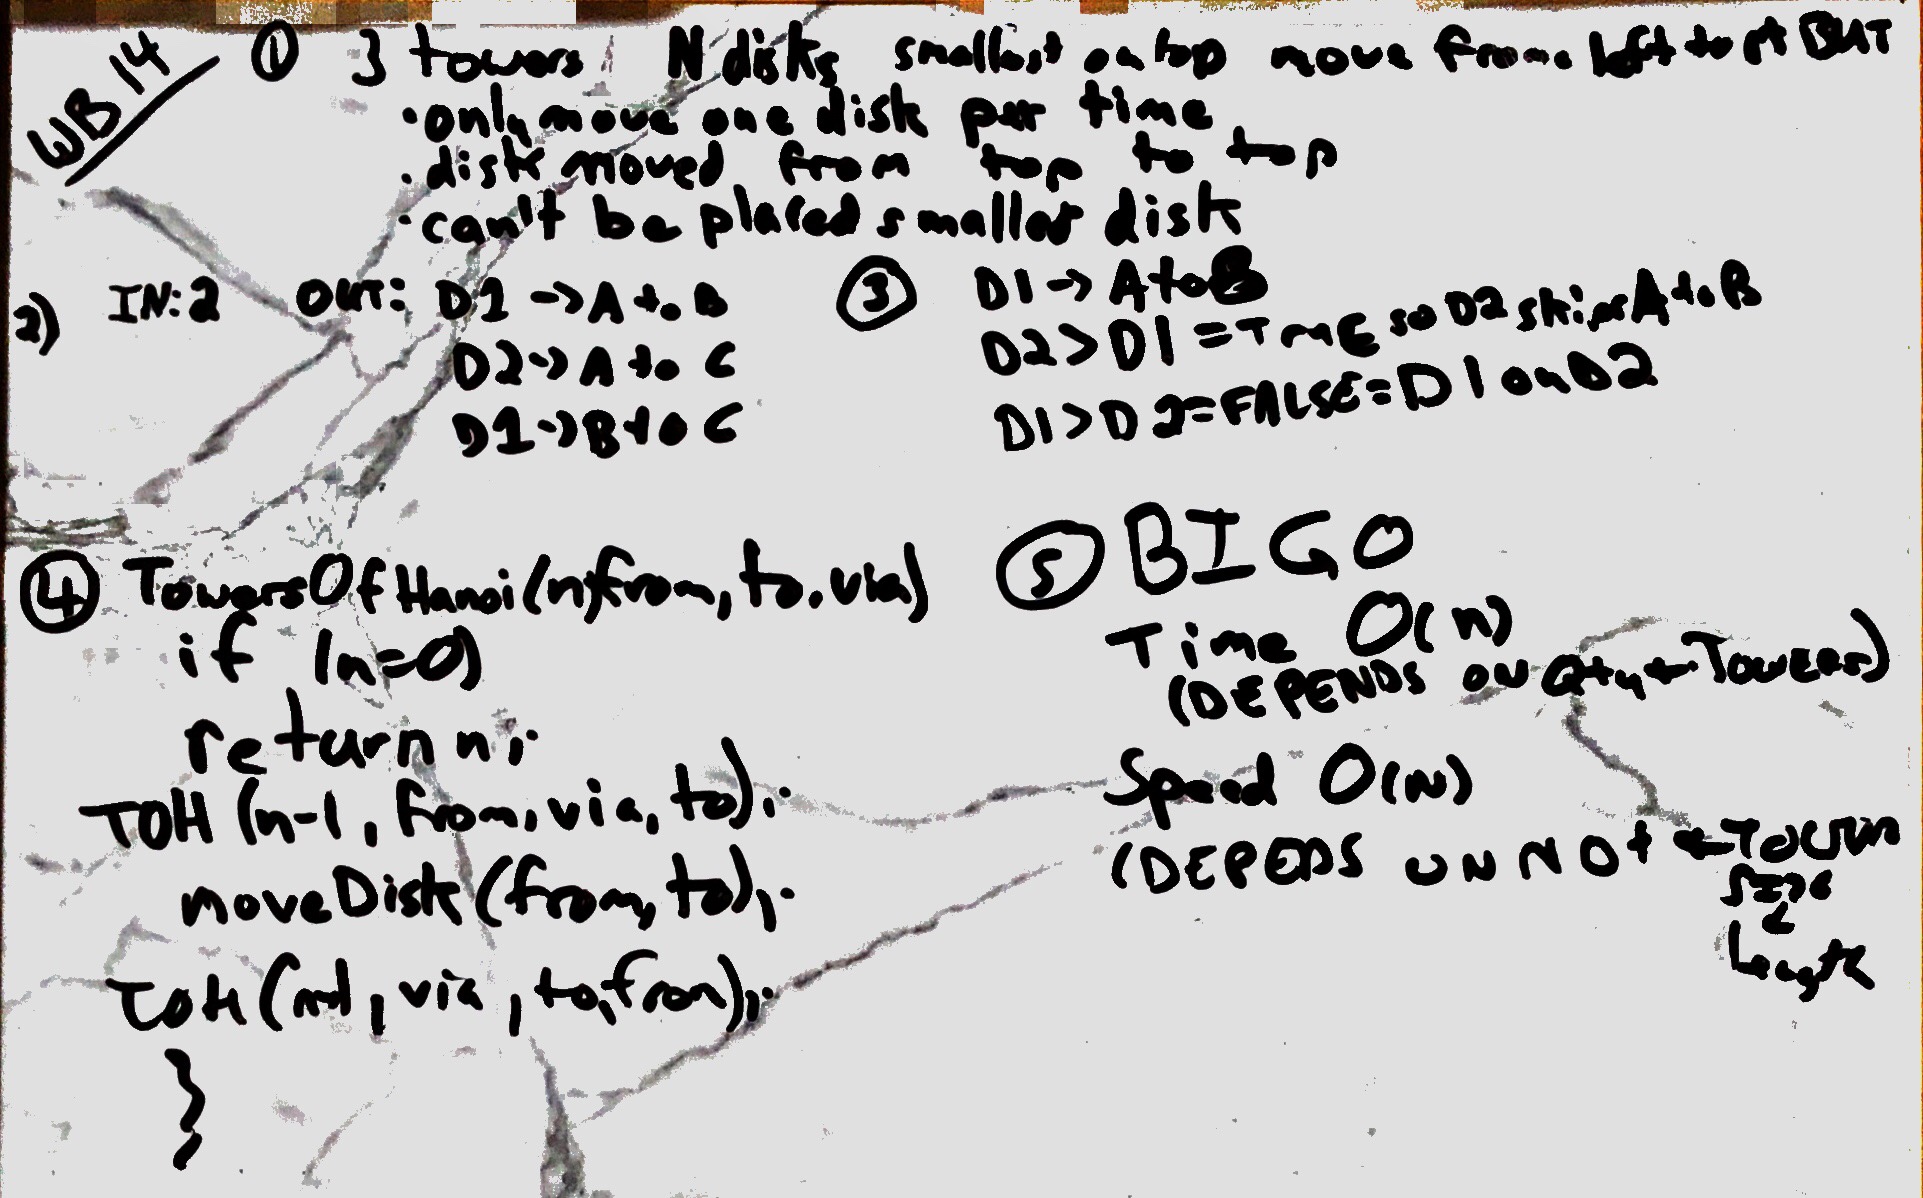 WB 14
① 3 towers N disks smallest on top move from left to rt BUT
• only move one disk per time
• disks moved from top to top
• can't be placed smaller disk
2) IN: 2 OUT: D1 -> A to B
D2 -> A to C
D1 -> B to C
③ D1 -> A to B
D2 > D1 = TruE so D2 skips A to B
D1 > D2 = FALSE = D1 on D2
④ TowersOfHanoi(n, from, to, via)
if (n=0)
return n;
TOH (n-1, from, via, to);
moveDisk (from, to);
TOH (n-1, via, to, from);
}
⑤ BIG O
Time O(n)
(DEPENDS ON Qty ← Towers)
Speed O(N)
(DEPEDS ON NOt ←
Length